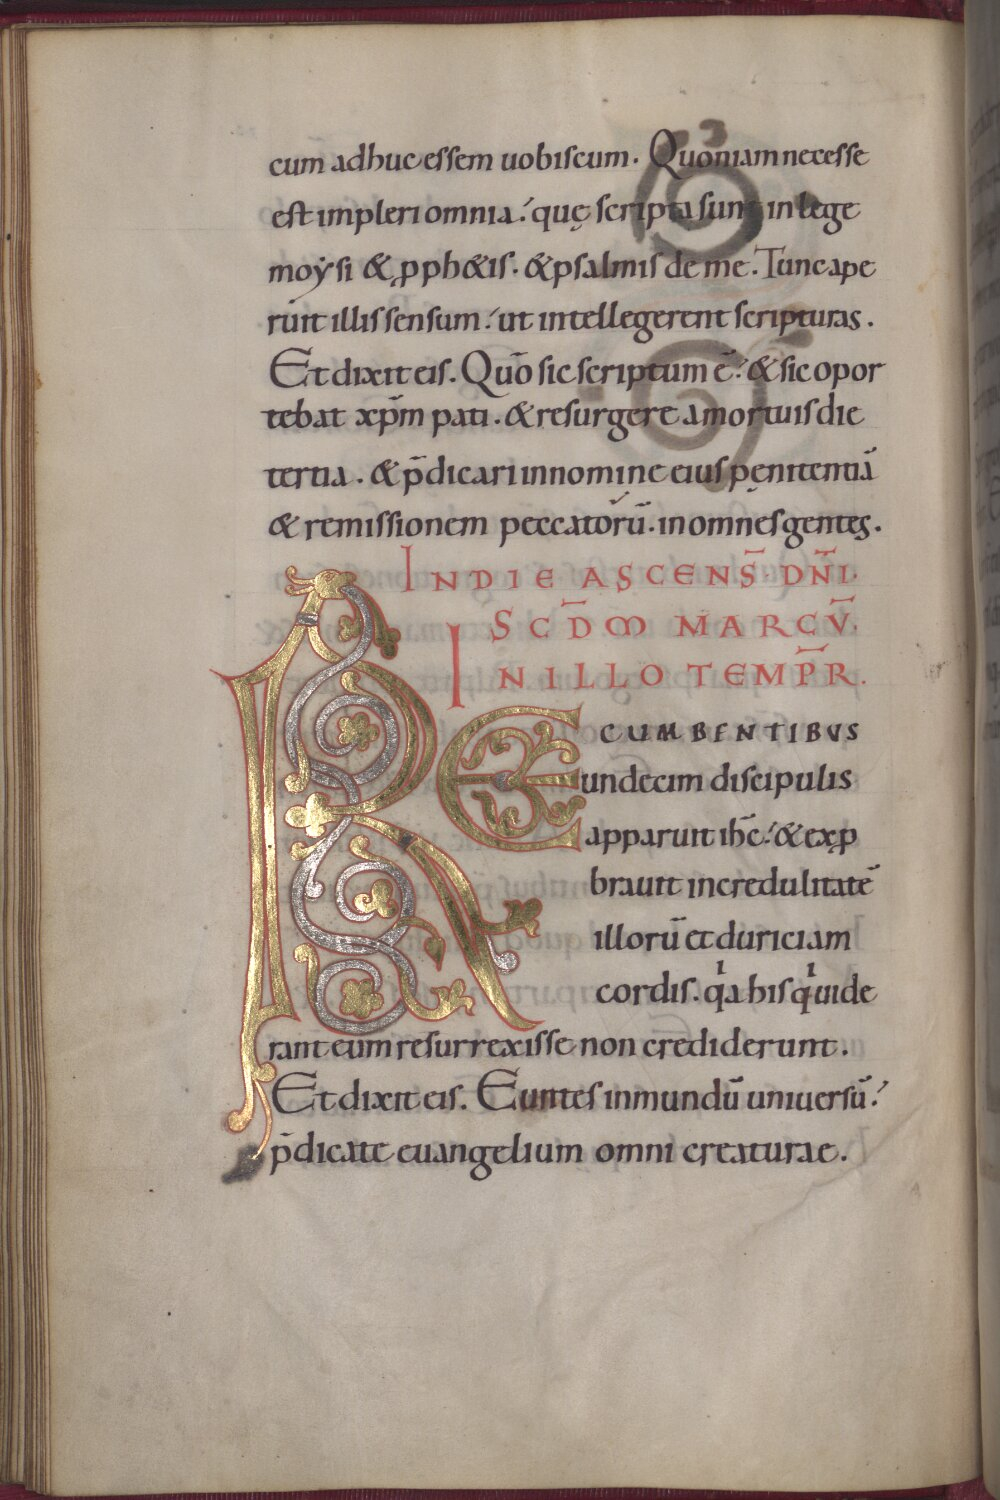 cum adhuc essem uobiscum. Quoniam necesse
est impleri omnia.' quę scripta sunt in lege
moẏsi & ꝓph&is. & psalmis de me. Tunc ape
ruit illis sensum.' ut intellegerent scripturas.
Et dixit eis. Quō sic scriptum ē.' & sic opor
tebat xp̄m pati. & resurgere a mortuis die
tertia. & p̄dicari in nomine eius penitentiā
& remissionem peccatorū. in omnes gentes.
IN DIE ASCENS̄. DN̄I.
SCD̄M MARCV̄.
IN ILLO TEMP̄R.
RECUMBENTIBVS
undecim discipulis
apparuit ih̄c.' & exꝓ
brauit incredulitatē
illorū et duriciam
cordis. qͥa his qͥ uide
rant eum resurrexisse non crediderunt.
Et dixit eis. Euntes in mundū uniuersū.'
p̄dicate euangelium omni creaturae.